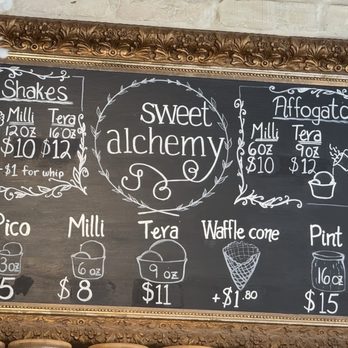 Shakes
Milli Tera
12oz 16oz
$10 $12
+$1 for whip
sweet
alchemy
Affogato
Milli Tera
6oz 9oz
$10 $12
Pico
3oz
5
Milli
6oz
$8
Tera
9oz
$11
Waffle cone
+$1.80
Pint
16oz
$15